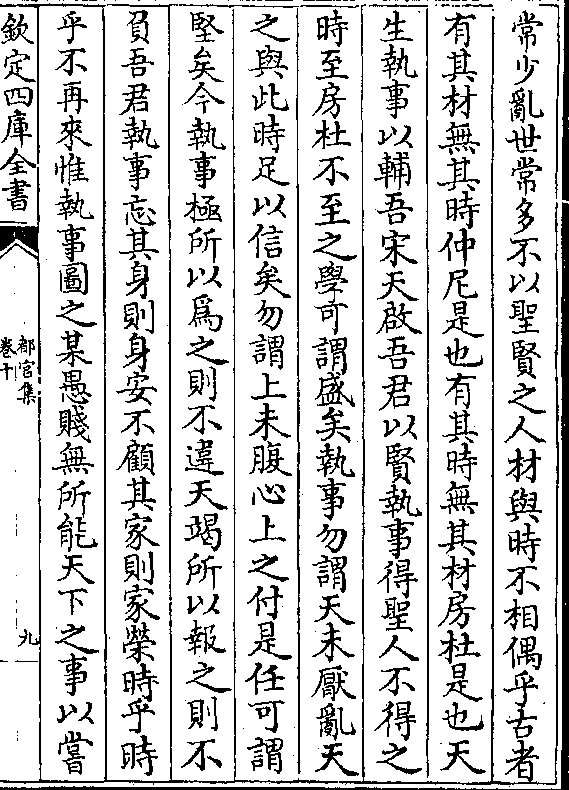 常少亂世常多不以聖賢之人材與時不相偶乎古者
有其材無其時仲尼是也有其時無其材房杜是也天
生執事以輔吾宋天啟吾君以賢執事得聖人不得之
時至房杜不至之學可謂盛矣執事勿謂天未厭亂天
之與此時足以信矣勿謂上未腹心上之付是任可謂
堅矣今執事極所以爲之則不違天竭所以報之則不
負吾君執事忘其身則身安不顧其家則家榮時乎時
乎不再來惟執事圖之某愚賤無所能天下之事以嘗
欽定四庫全書
都官集
卷十
九